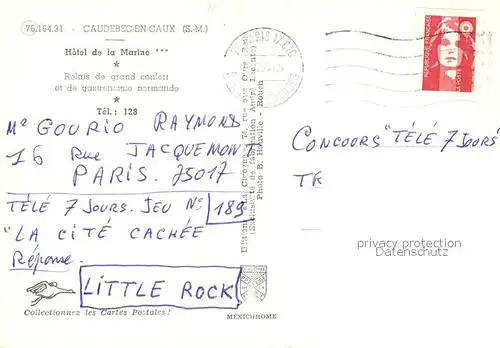 76.164.31 - CAUDEBEC-EN-CAUX (S.-M.)
Hôtel de la Marine ***
Relais de grand confort
et de gastronomie normande
Tél. : 128
Mr GOURIO RAYMOND
16 Rue JACQUEMONT
PARIS. 75017
TÉLÉ 7 JOURS. JEU No 189
"LA CITÉ CACHÉE
Réponse
LITTLE ROCK
Collectionnez les Cartes Postales !
MEXICHROME
Photo B. Rouen
PARIS 17
RÉPUBLIQUE FRANÇAISE
LA POSTE
CONCOURS "TÉLÉ 7 JOURS"
privacy protection
Datenschutz